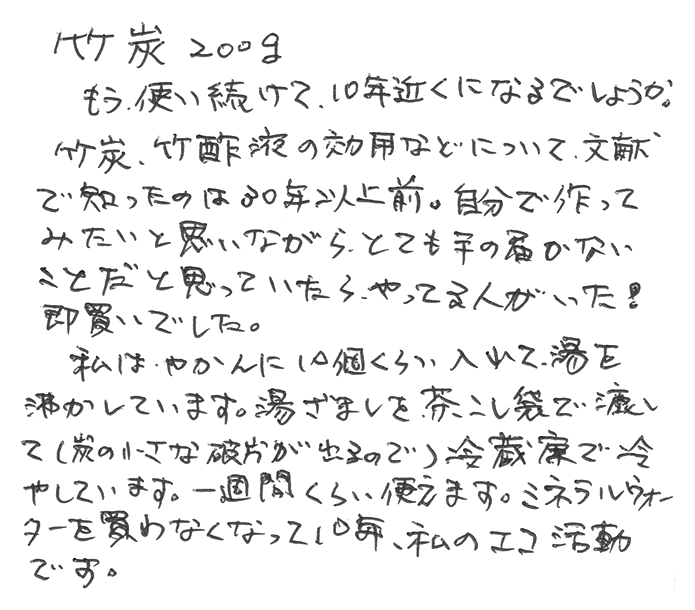 竹炭 200g
もう、使い続けて、10年近くになるでしょうか。
竹炭、竹酢液の効用などについて、文献
で知ったのは30年以上前。自分で作って
みたいと思いながら、とても手の届かない
ことだと思っていたら、やってる人がいった!
即買いでした。
私は、やかんに10個くらい入れて、湯を
沸かしています。湯ざましを、茶こし袋で漉し
て(炭の小さな破片が出るので)冷蔵庫で冷
やしています。一週間くらい使えます。ミネラルウォー
ターを買わなくなって10年、私のエコ活動
です。